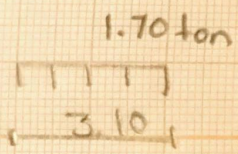 1.70 ton
3.10